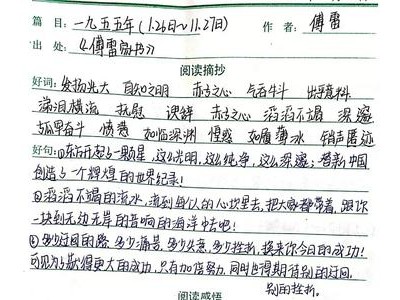 篇 目：一九五五年(1.26日~11.27日) 作 者：傅雷
出 处：《傅雷家书》
阅读摘抄
好词：发扬光大 自知之明 赤子之心 气吞斗牛 出乎意料
涕泪横流 抚慰 谅解 赤子之心 滔滔不竭 深邃
孤军奋斗 愤懑 如临深渊 惶惑 如履薄冰 销声匿迹
好句：①东方升起了一颗星，这么光明，这么纯净，这么深邃；替新中国
创造了一个辉煌的世界纪录！
②滔滔不竭的流水，流到每个人的心坎里去，把大家都带着，跟你
一块到无边无岸的音响的海洋中去吧！
③多少迂回的路，多少痛苦，多少失意，多少挫折，换来你今日的成功！
可见为了获得更大的成功，只有加倍努力，同时也得期待别的迂回，
别的挫折。
阅读感悟